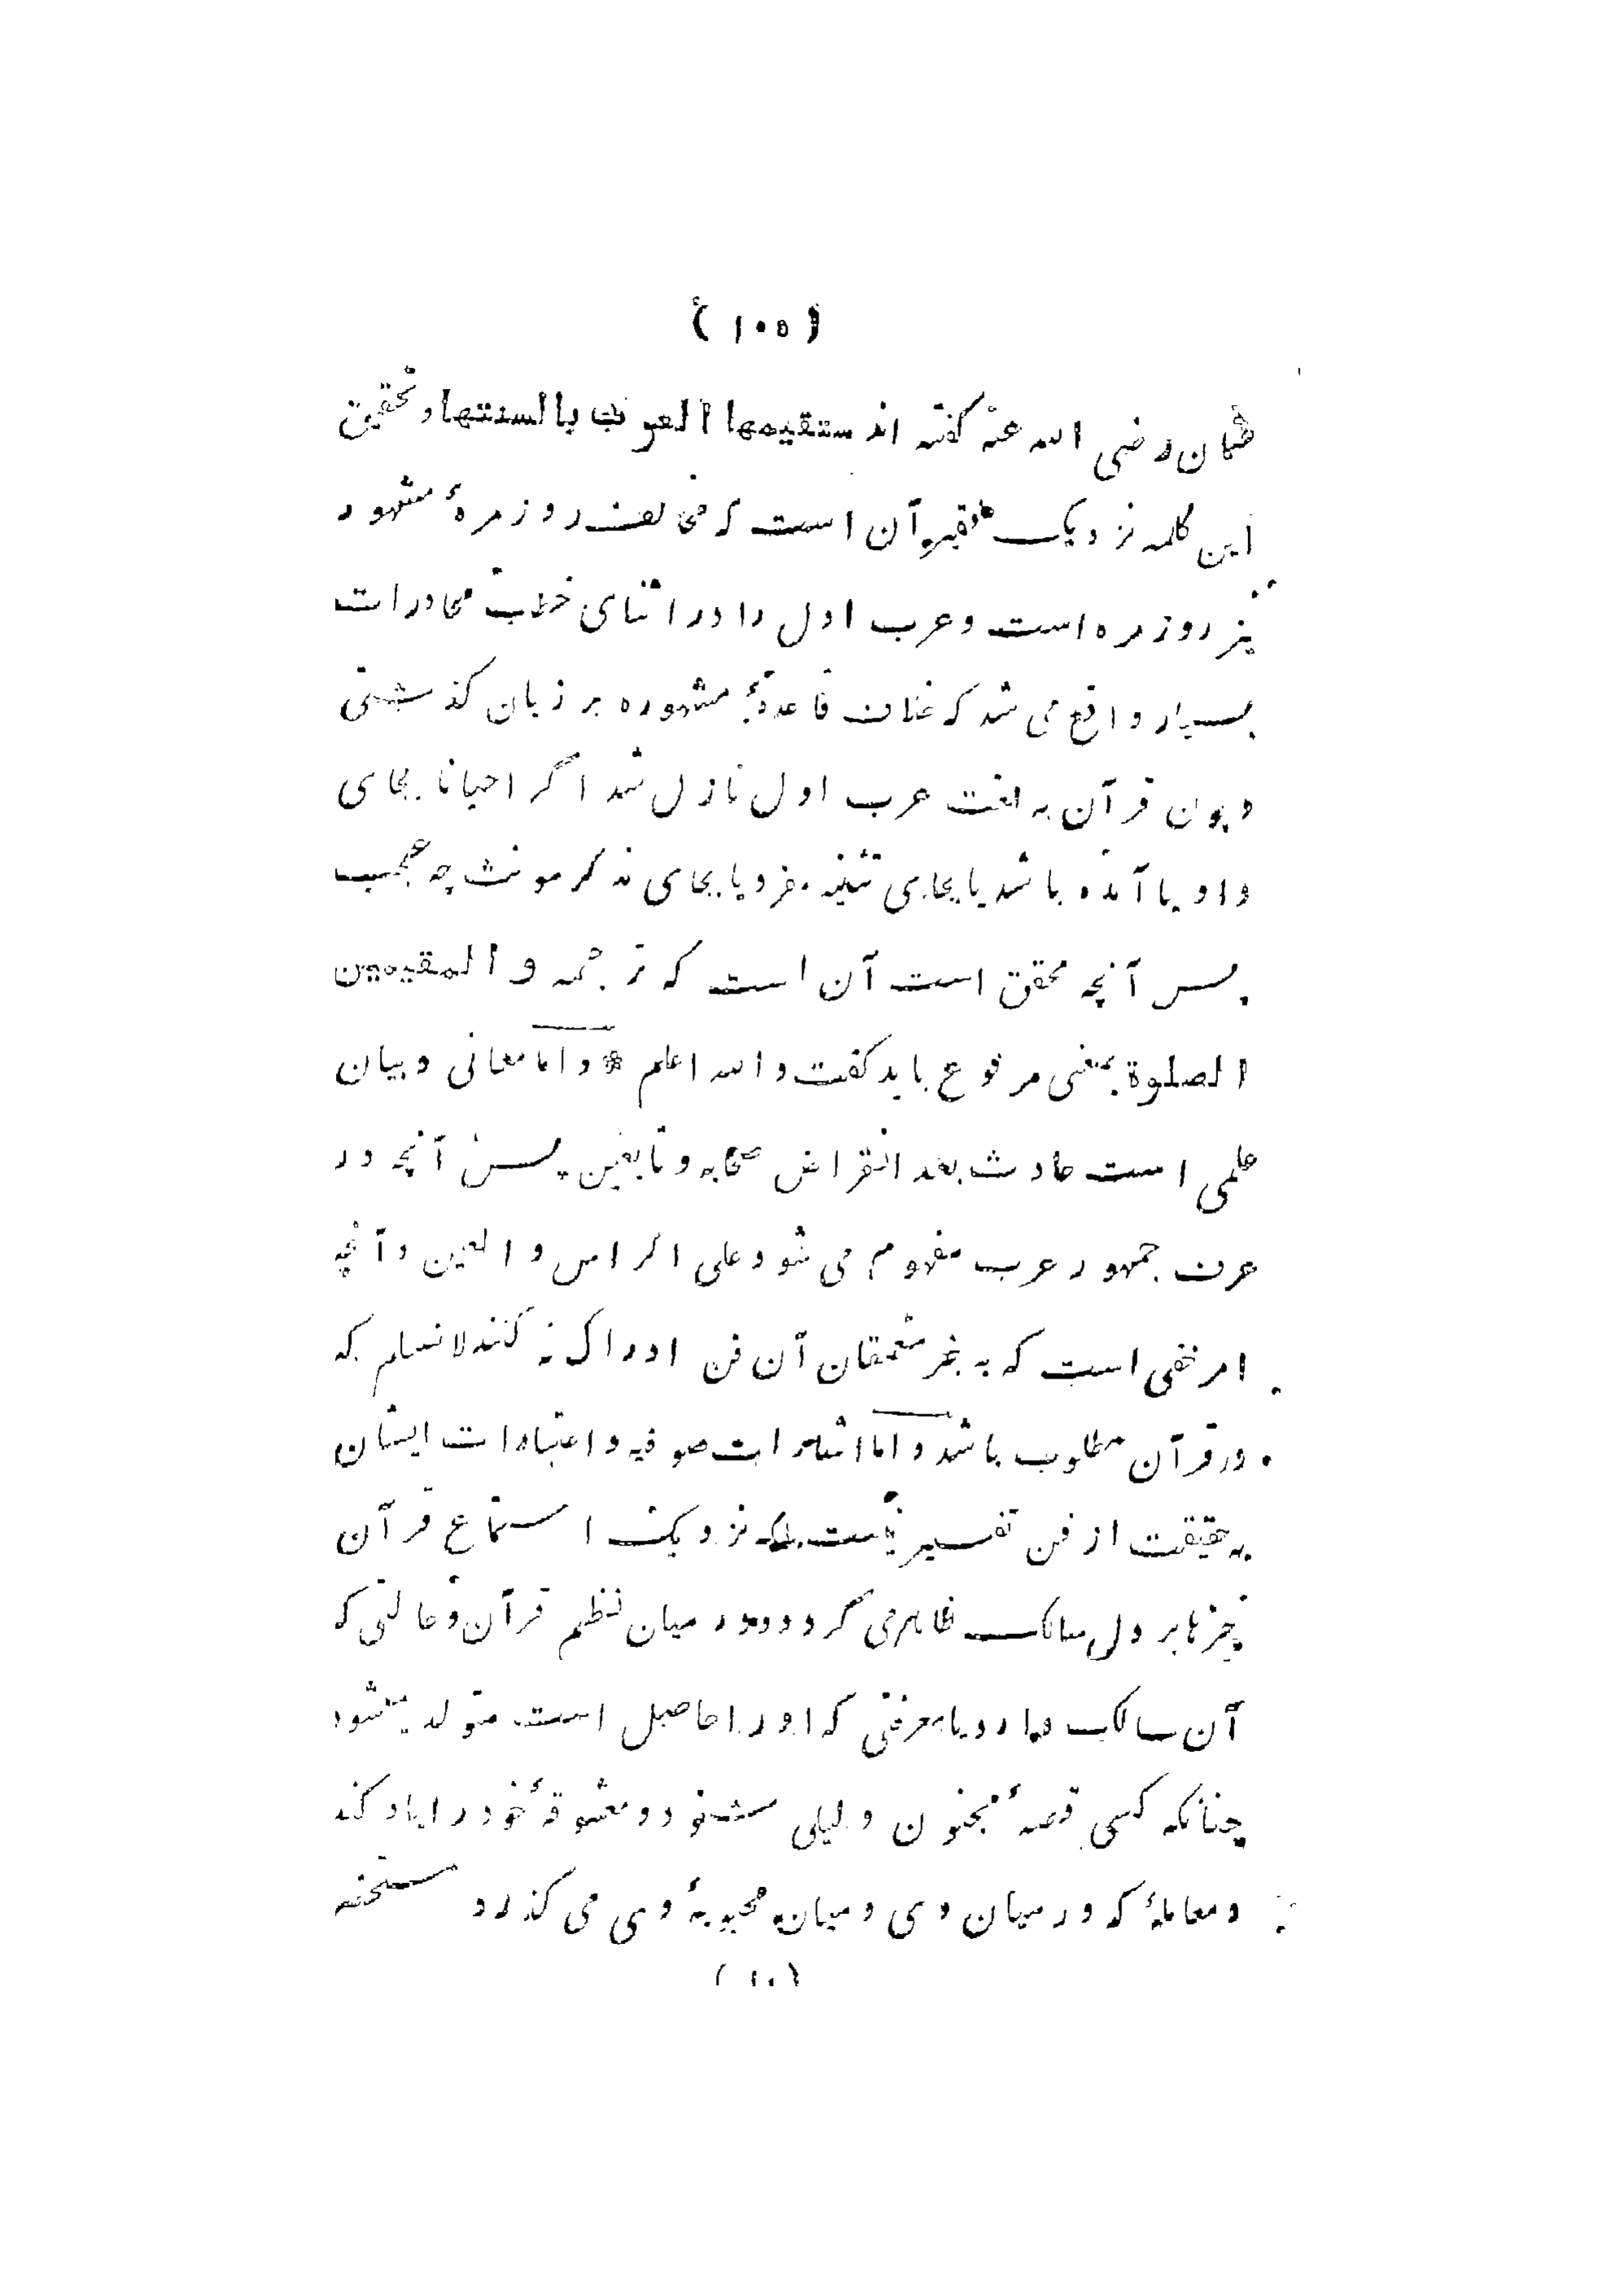 (۱۰۵)
عثمان رضی الله عنه گفته اند ستقيمها العرب بالسنتها و تحقیق
این کلمه نزدیک فقیر آن است که مخالف روزمرهٔ مشهور
نیز روزمره است و عرب اول را در اثنای خطب و محاورات
بسیار واقع می شد که خلاف قاعدهٔ مشهوره بر زبان گذشتی
و چون قرآن به لغت عرب اول نازل شد اگر احیانا بجای
واو یا آمده باشد یا بجای تثنیه مفرد یا بجای مذکر مونث چه عجب
پس آنچه محقق است آن است که ترجمه و المقیمین
الصلوة بمعنی مرفوع باید گفت و الله اعلم * و اما معانی و بیان
علمی است حادث بعد انقراض صحابه و تابعین پس آنچه در
عرف جمهور عرب مفهوم می شود علی الراس و العین و آنچه
امر خفی است که به غیر متعمقان آن فن ادراک نه کنند لا نسلم که
در قرآن مطلوب باشد و اما اشارات صوفیه و اعتبارات ایشان
به حقیقت از فن تفسیر نیست بلکه نزدیک استماع قرآن
چیزها بر دل سالک ظاهر می گردد و در میان نظم قرآن و حالتی که
آن سالک دارد یا معرفتی که او را حاصل است متولد میشود
چنانکه کسی قصهٔ مجنون و لیلی شنود و معشوقهٔ خود را یاد کند
و معاملهٔ که در میان وی و میان محبوبهٔ وی می گذرد مستحضر